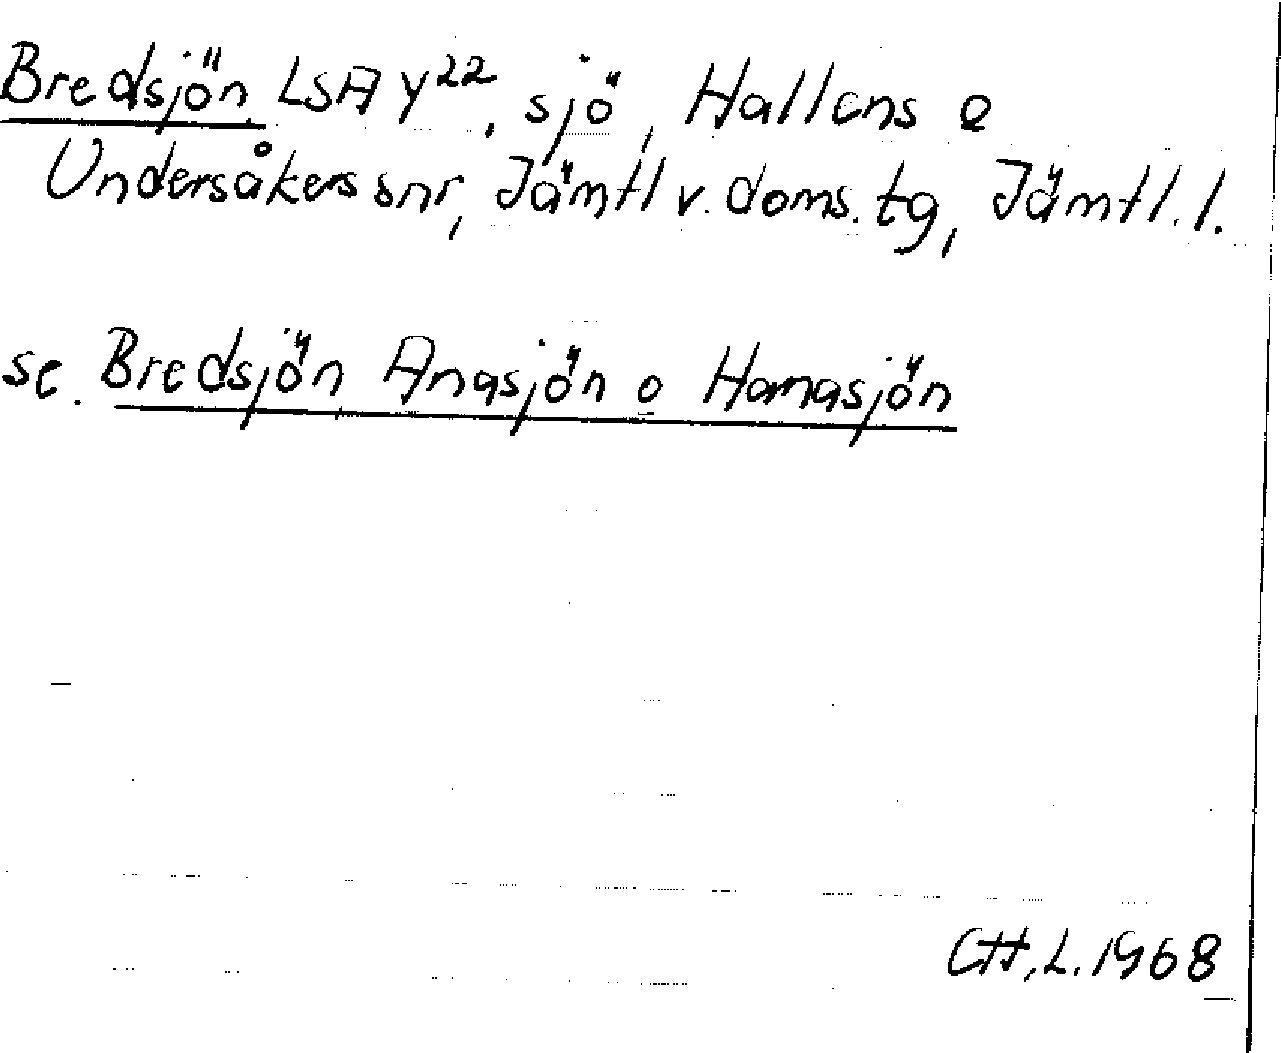 Bredsjön LSA Y22, sjö, Hallens o
Undersåkers snr, Jämtl v. doms. tg, Jämtl. l.
se. Bredsjön Anasjön o Hamasjön
CH, L. 1968